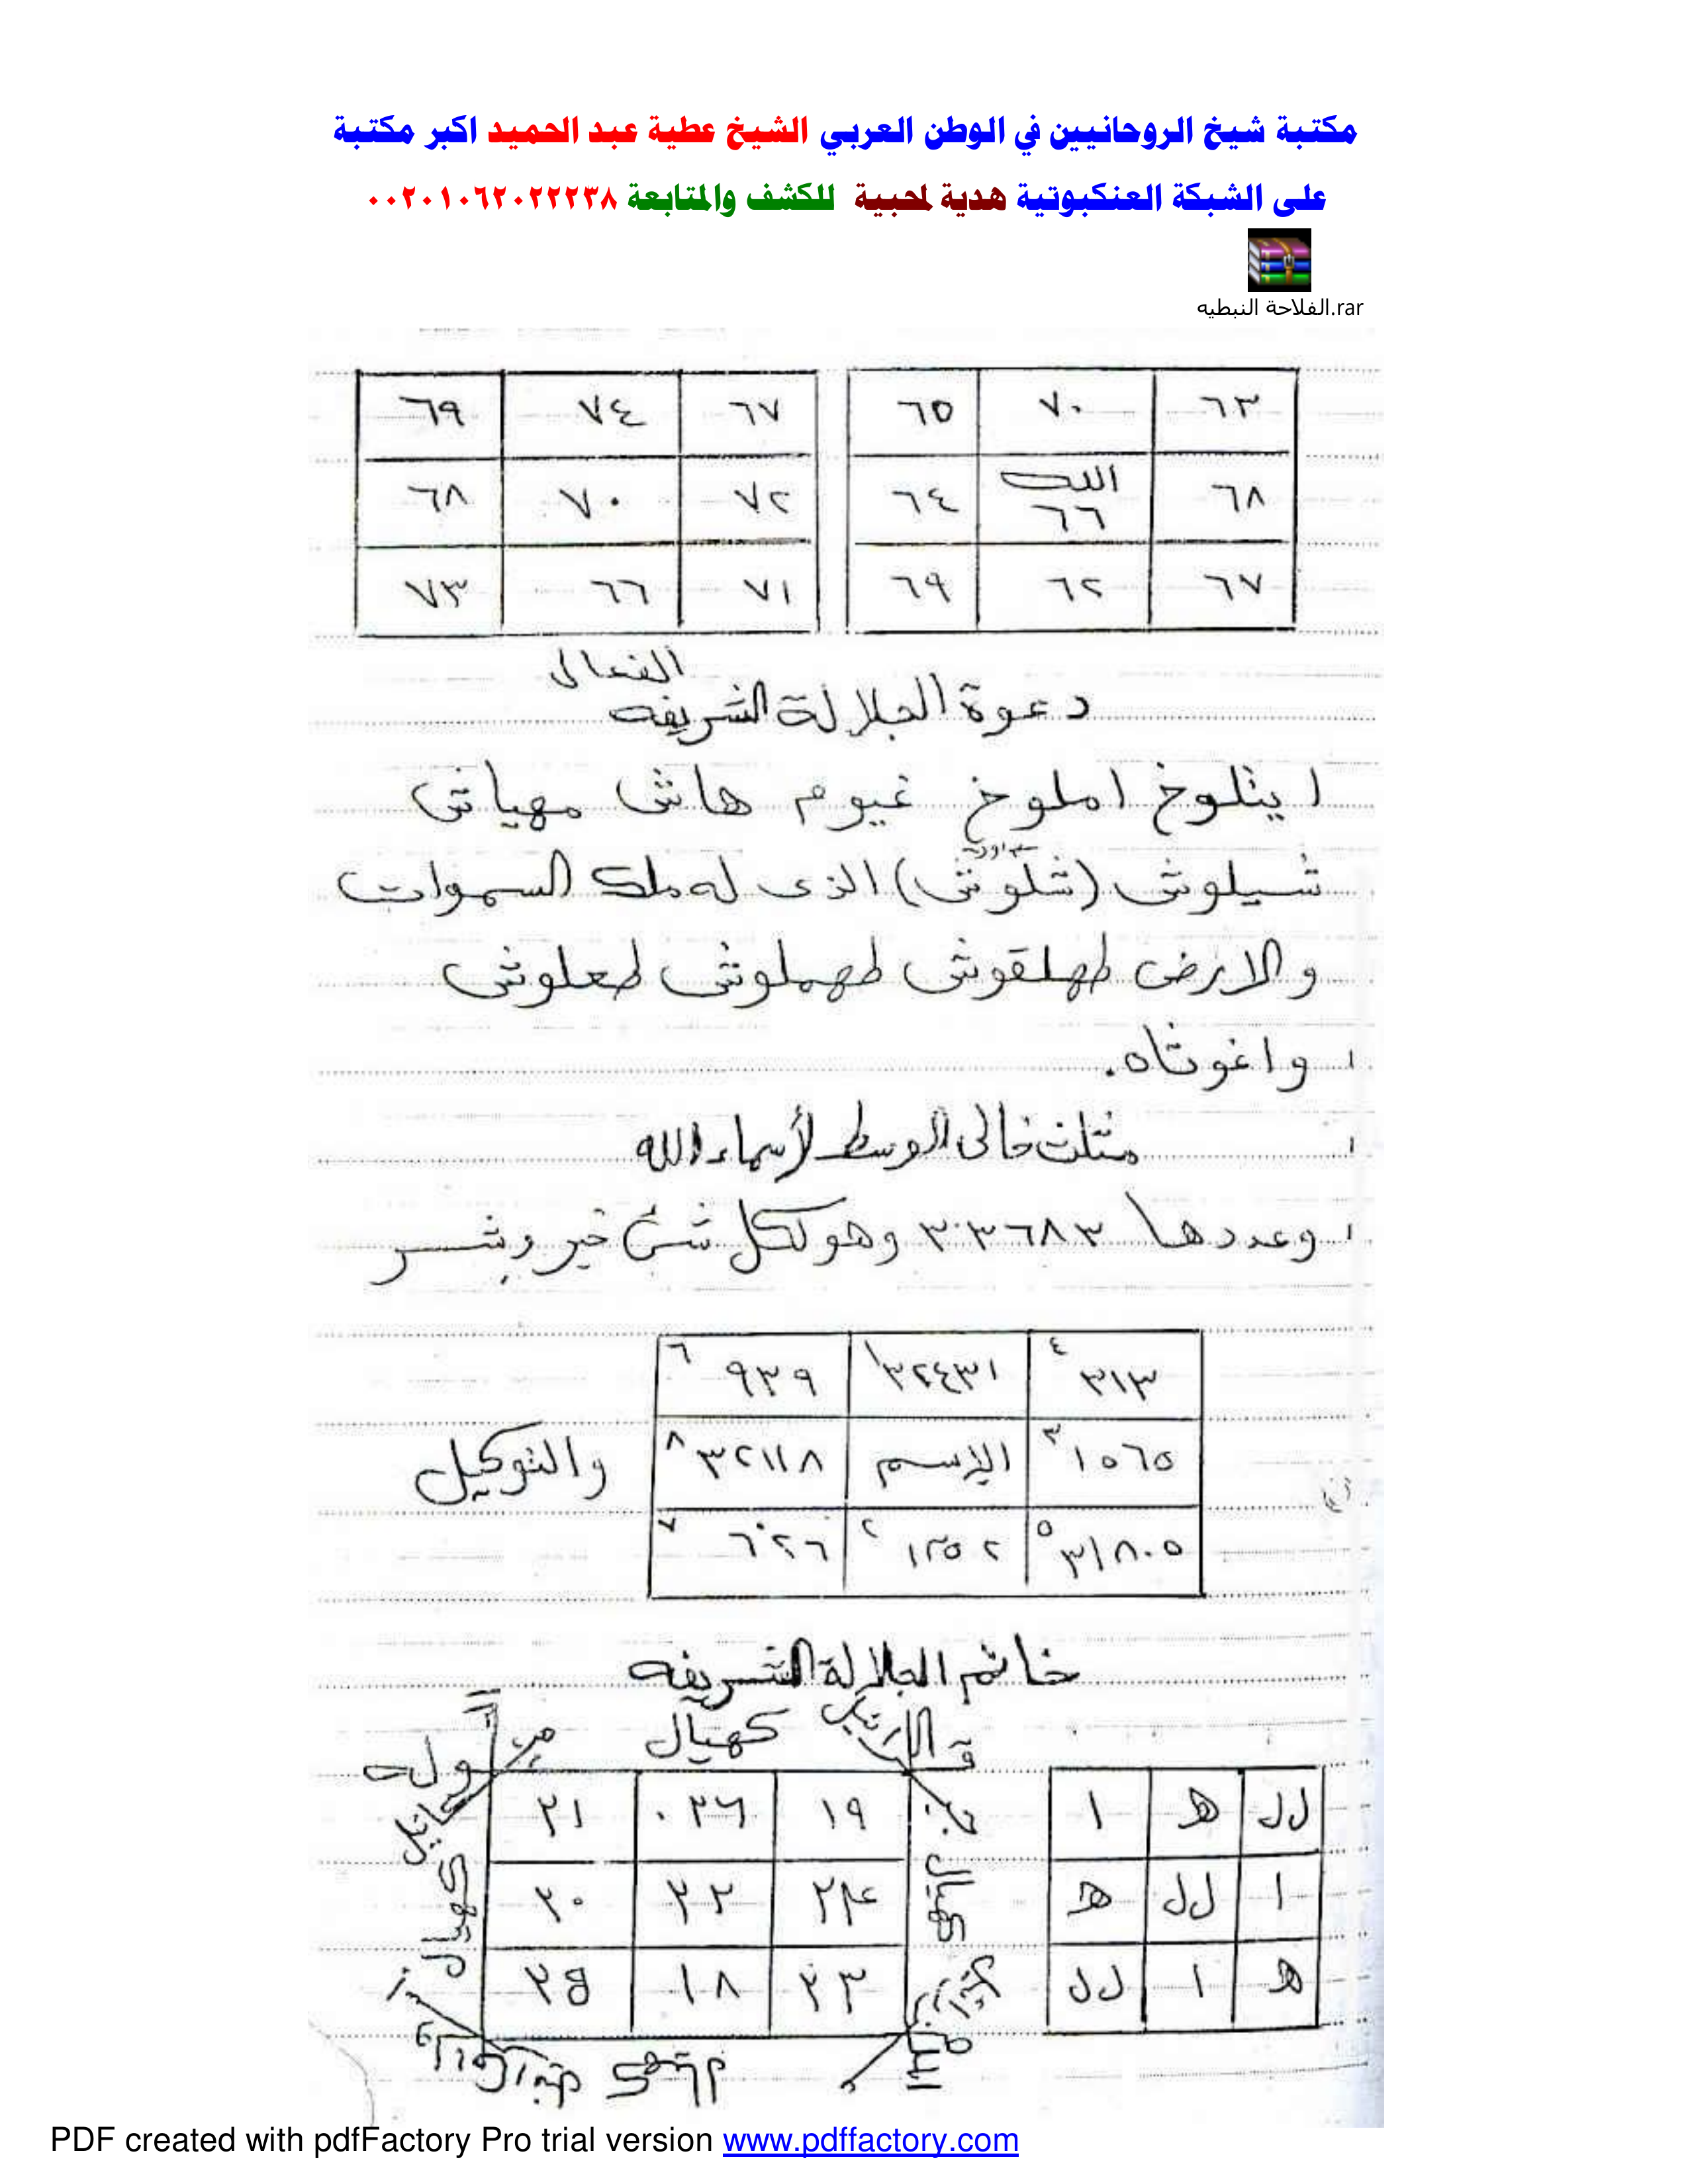 مكتبة شيخ الروحانيين في الوطن العربي الشيخ عطية عبد الحميد اكبر مكتبة
على الشبكة العنكبوتية هدية لمحبية للكشف والمتابعة ٠٠٢٠١٠٦٢٠٢٢٢٣٨
الفلاحة النبطيه.rar
٦٣ ٧٠ ٦٥ ٦٧ ٧٤ ٦٩
٦٨ الله ٦٦ ٦٤ ٧٢ ٧٠ ٦٨
٦٧ ٦٢ ٦٩ ٧١ ٦٦ ٧٣
دعوة الجلالة الشريفه
اينلوخ املوخ غيوم هاش مهياش
شيلوش (شلوش) الذى له ملك السموات
والارض طهلقوش طهملوش طعلوش
واغوثاه.
مثلث خالى الوسط لأسماء الله
وعددها ٣٣٦٨٣ وهو لكل شئ خير وشر
٤ ٣١٣ ١ ٣٢٤٣١ ٦ ٩٣٩
٣ ١٥٦٥ الإسم ٨ ٣٢١١٨ والتوكيل
٥ ٣١٨٠٥ ٢ ١٢٥٢ ٧ ٦٢٦
خاتم الجلالة الشريفه
وله كهيال
لل ه ا ١٩ ٢٦ ٢١
ا لل ه ٢٤ ٢٢ ٢٠
ه ا لل ٢٣ ١٨ ٢٥
كهيال
كهيال
PDF created with pdfFactory Pro trial version www.pdffactory.com